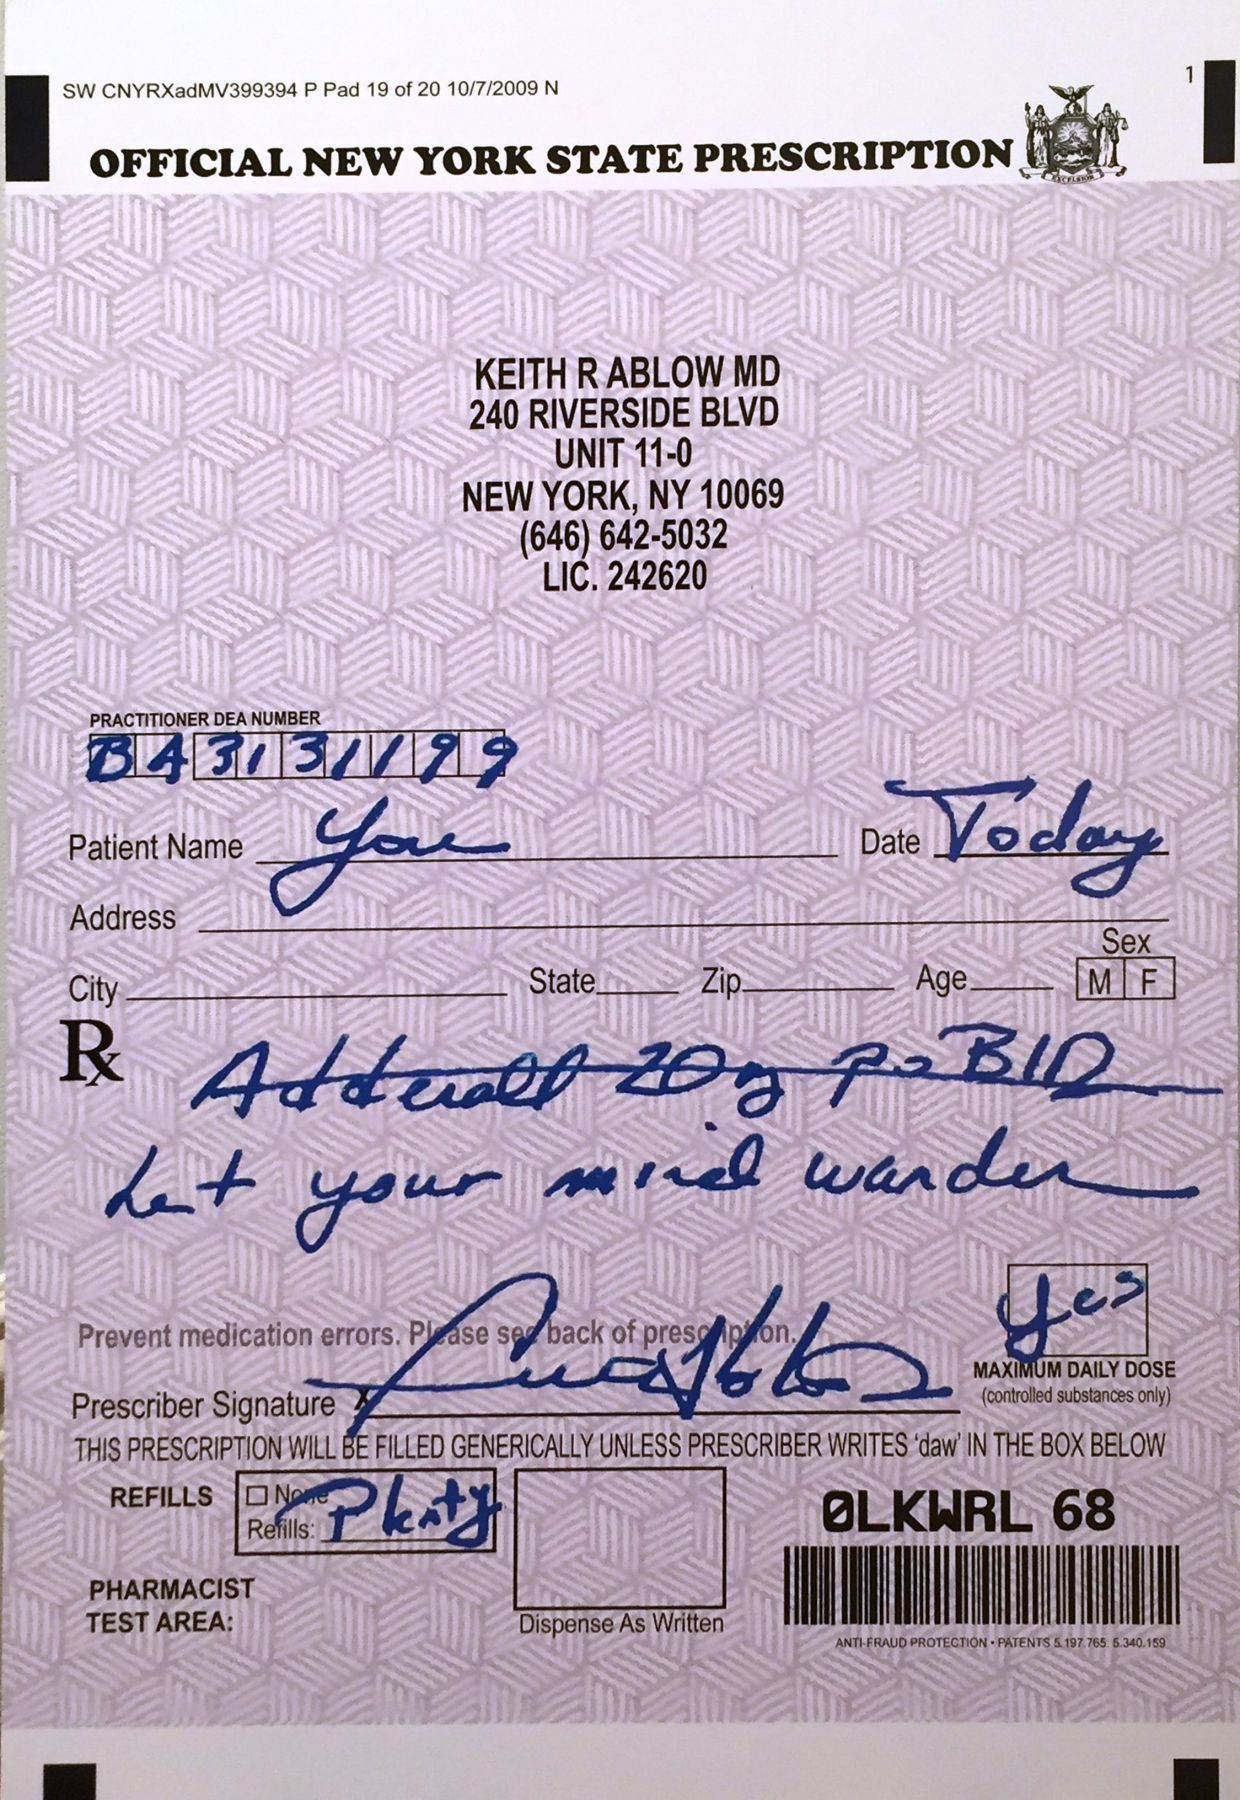 SW CNYRXadMV399394 P Pad 19 of 20 10/7/2009 N
1
OFFICIAL NEW YORK STATE PRESCRIPTION
EXCELSIOR
KEITH R ABLOW MD
240 RIVERSIDE BLVD
UNIT 11-0
NEW YORK, NY 10069
(646) 642-5032
LIC. 242620
PRACTITIONER DEA NUMBER
BA3131199
Patient Name You Date Today
Address
City State Zip Age Sex M F
Rx Adderall 20mg po BID
Let your mind wander
Prevent medication errors. Please see back of prescription.
yes
MAXIMUM DAILY DOSE
(controlled substances only)
Prescriber Signature X
THIS PRESCRIPTION WILL BE FILLED GENERICALLY UNLESS PRESCRIBER WRITES 'daw' IN THE BOX BELOW
REFILLS None
Refills: Plenty
0LKWRL 68
PHARMACIST
TEST AREA:
Dispense As Written
ANTI-FRAUD PROTECTION • PATENTS 5.197.765; 5.340.159